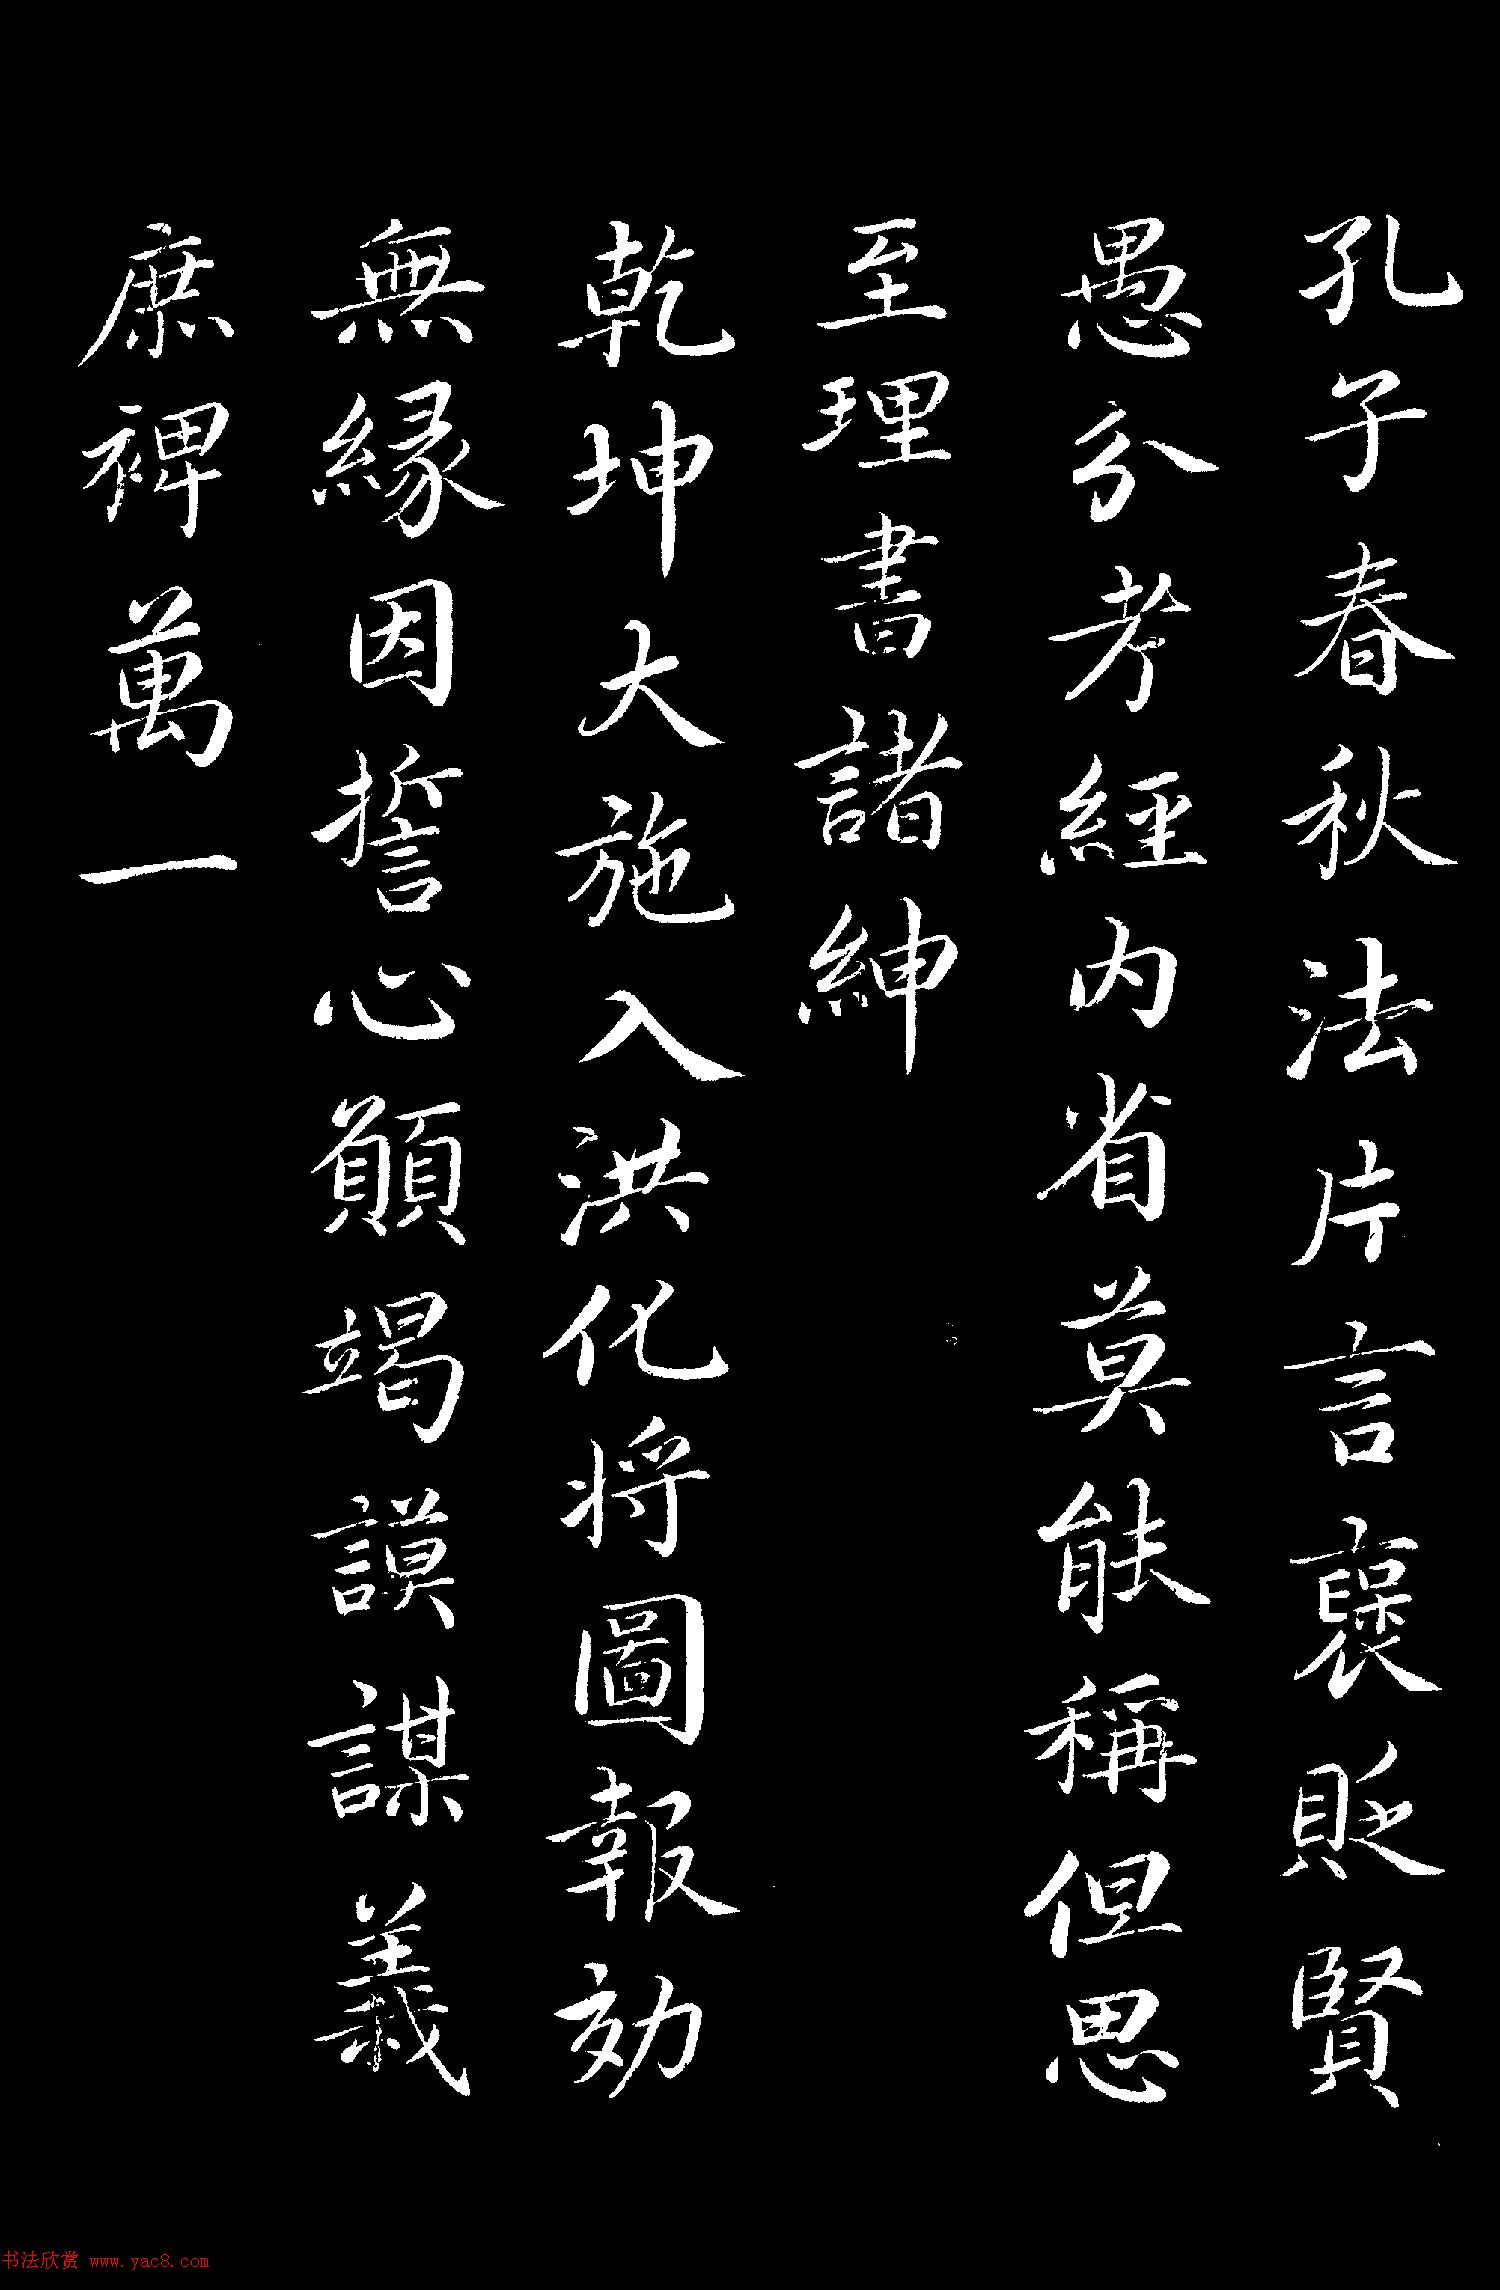 孔子春秋法片言褒貶賢
愚分考經內省莫能稱但思
至理書諸紳
乾坤大施入洪化將圖報効
無緣因誓心願竭謨謀義
庶裨萬一
书法欣赏 www.yac8.com